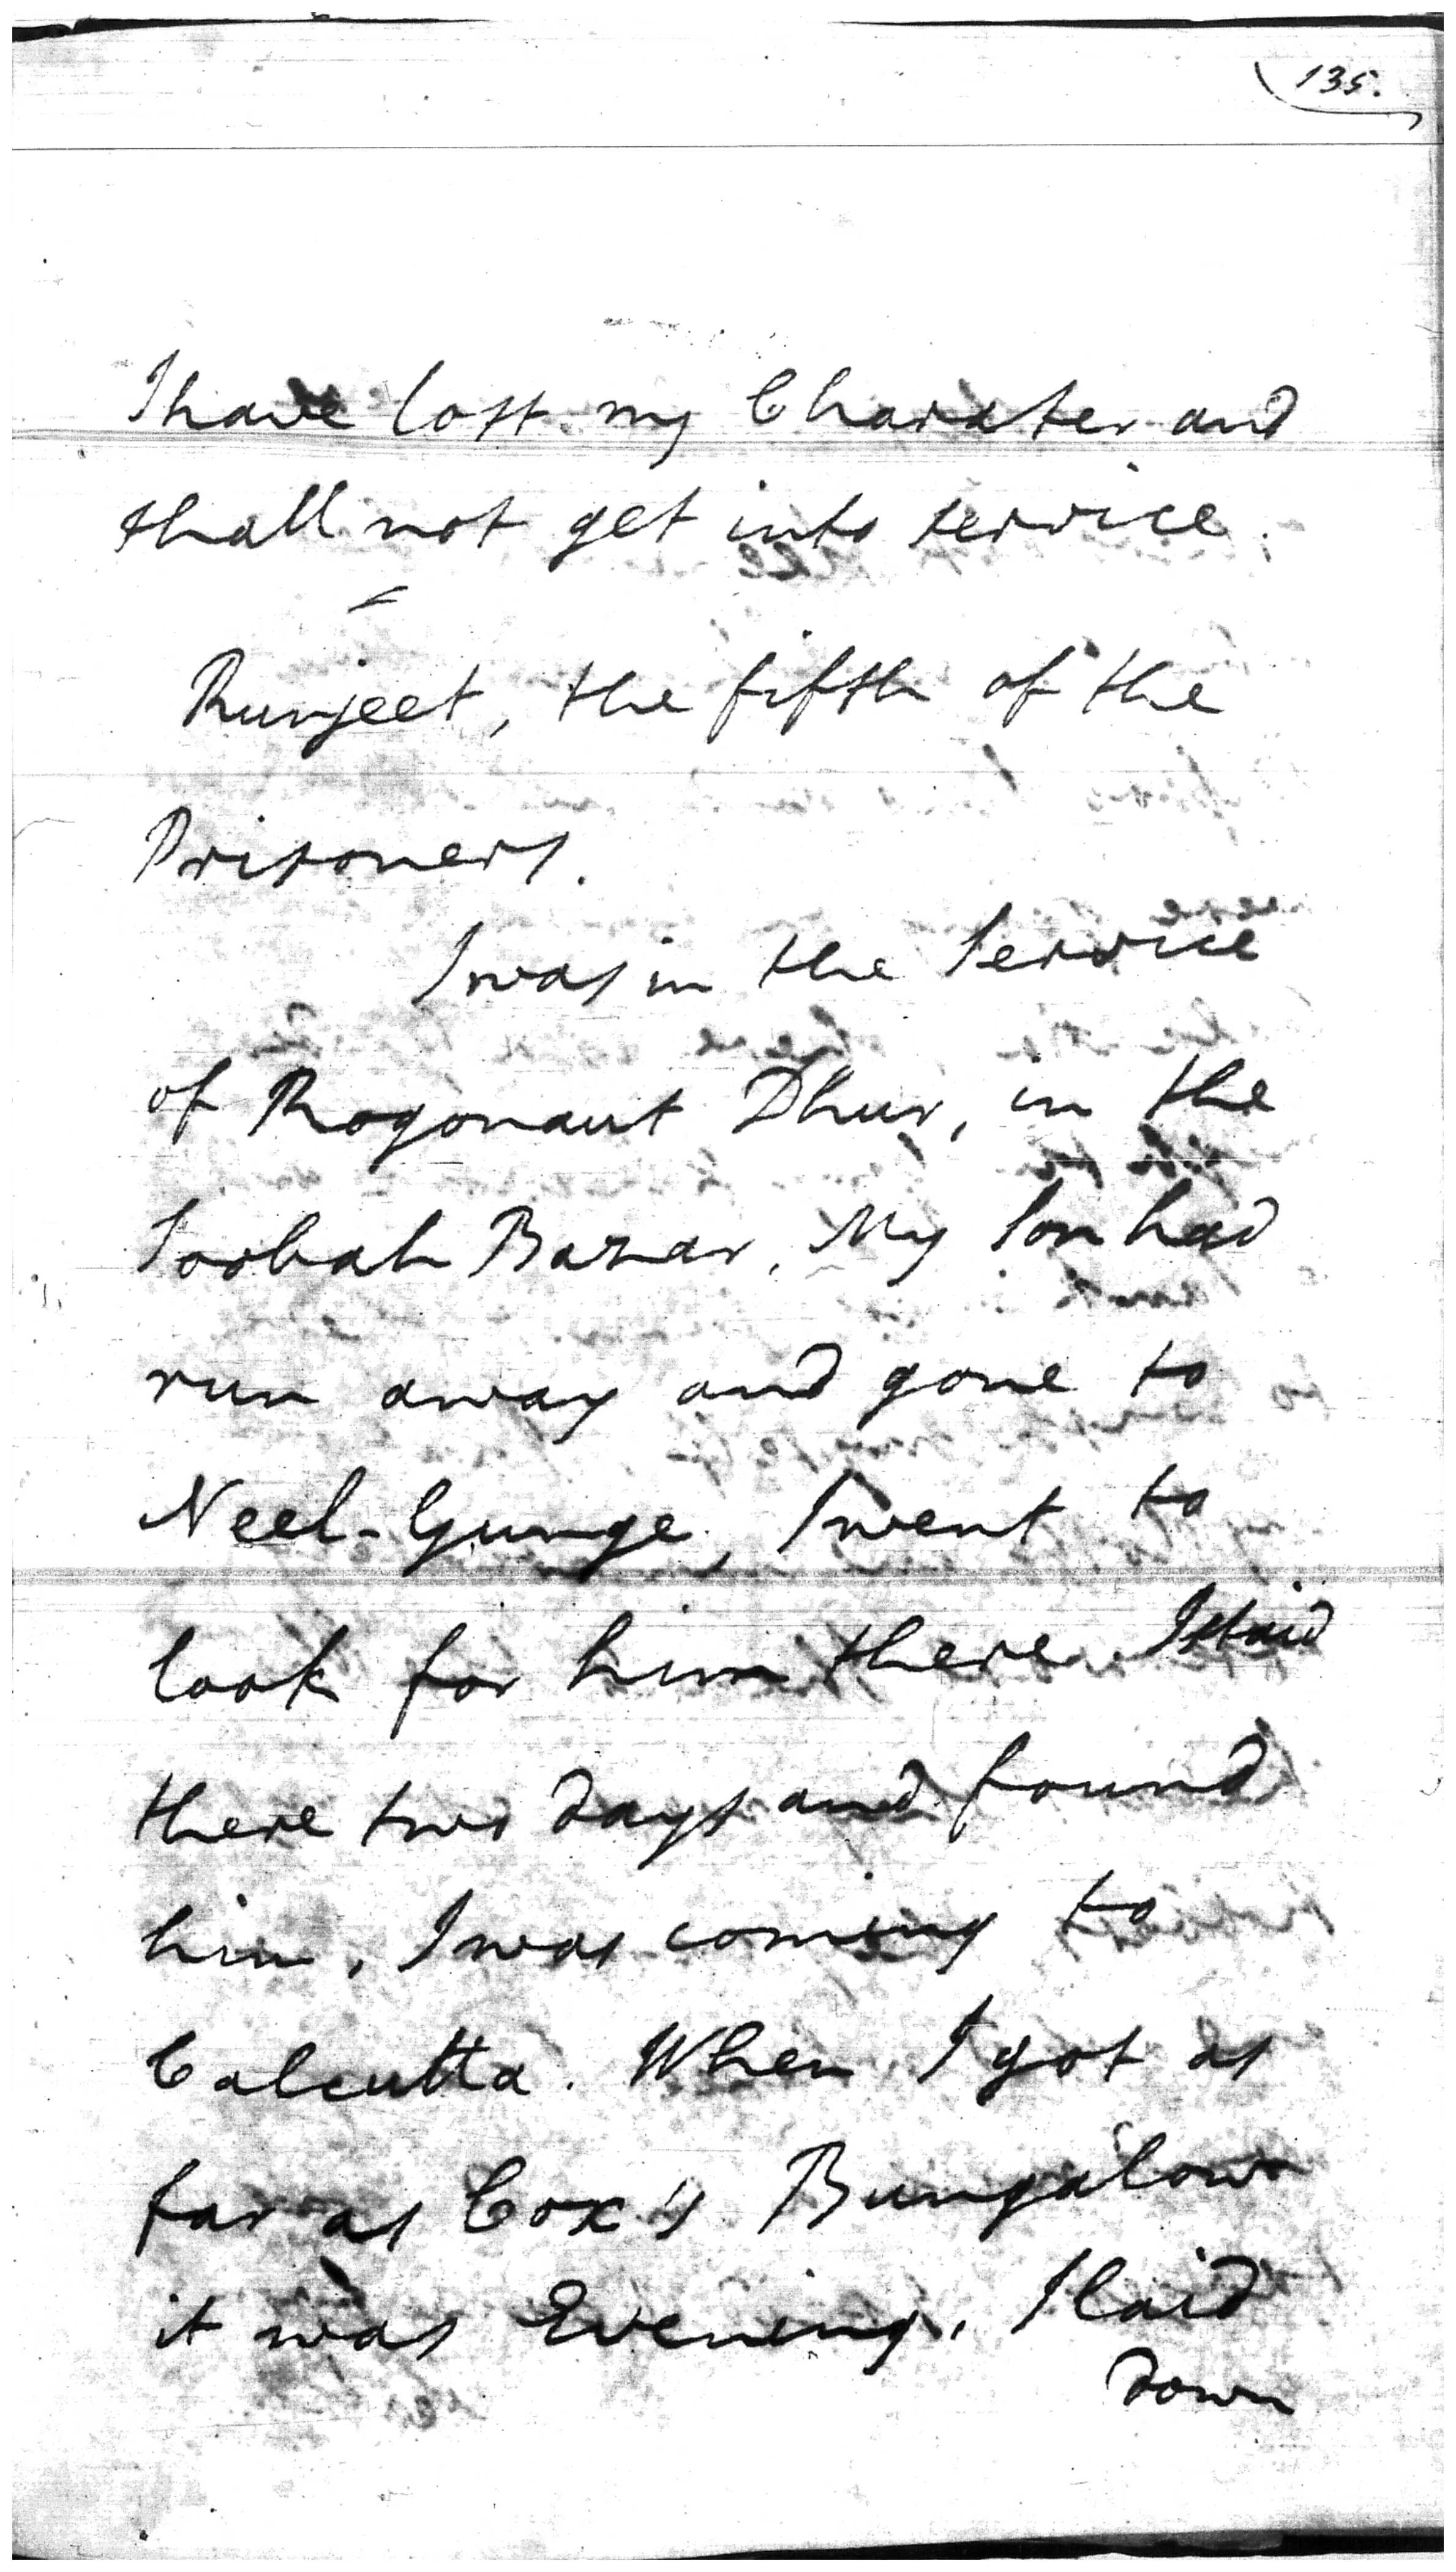 135.
I have lost my Charater and
shall not get into service.
Runjeet, the fifth of the
Prisoners.
I was in the Service
of Rogonaut Dhur, in the
Soobah Bazar, My Son had
run away and gone to
Neel-Gunge, I went to
look for him there I staid
there two days and found
him, I was coming to
Calcutta. When I got as
far as Cox's Bungalow
it was Evening, I laid
down